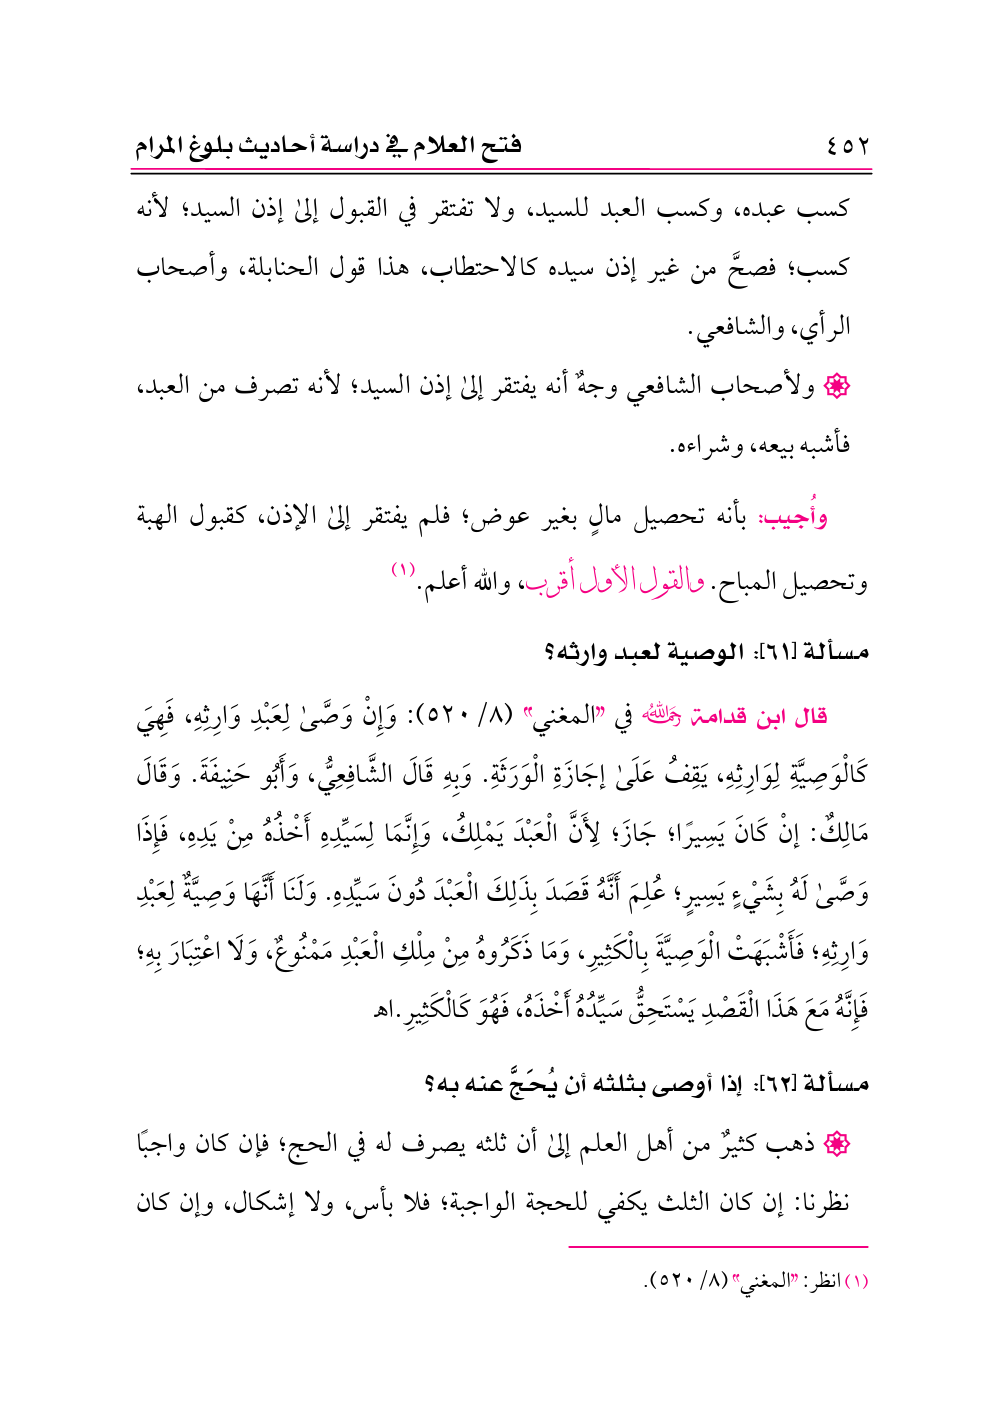 ٤٥٢ فتح العلام في دراسة أحاديث بلوغ المرام
كسب عبده، وكسب العبد للسيد، ولا تفتقر في القبول إلىٰ إذن السيد؛ لأنه
كسب؛ فصحَّ من غير إذن سيده كالاحتطاب، هذا قول الحنابلة، وأصحاب
الرأي، والشافعي.
ولأصحاب الشافعي وجهٌ أنه يفتقر إلىٰ إذن السيد؛ لأنه تصرف من العبد،
فأشبه بيعه، وشراءه.
وأُجيب: بأنه تحصيل مالٍ بغير عوض؛ فلم يفتقر إلىٰ الإذن، كقبول الهبة
وتحصيل المباح. والقول الأول أقرب، والله أعلم.(١)
مسألة [٦١]: الوصية لعبد وارثه؟
قال ابن قدامة رحمه الله في «المغني» (٨/ ٥٢٠): وَإِنْ وَصَّىٰ لِعَبْدِ وَارِثِهِ، فَهِيَ
كَالْوَصِيَّةِ لِوَارِثِهِ، يَقِفُ عَلَىٰ إجَازَةِ الْوَرَثَةِ. وَبِهِ قَالَ الشَّافِعِيُّ، وَأَبُو حَنِيفَةَ. وَقَالَ
مَالِكٌ: إنْ كَانَ يَسِيرًا؛ جَازَ؛ لِأَنَّ الْعَبْدَ يَمْلِكُ، وَإِنَّمَا لِسَيِّدِهِ أَخْذُهُ مِنْ يَدِهِ، فَإِذَا
وَصَّىٰ لَهُ بِشَيْءٍ يَسِيرٍ؛ عُلِمَ أَنَّهُ قَصَدَ بِذَلِكَ الْعَبْدَ دُونَ سَيِّدِهِ. وَلَنَا أَنَّهَا وَصِيَّةٌ لِعَبْدِ
وَارِثِهِ؛ فَأَشْبَهَتْ الْوَصِيَّةَ بِالْكَثِيرِ، وَمَا ذَكَرُوهُ مِنْ مِلْكِ الْعَبْدِ مَمْنُوعٌ، وَلَا اعْتِبَارَ بِهِ؛
فَإِنَّهُ مَعَ هَذَا الْقَصْدِ يَسْتَحِقُّ سَيِّدُهُ أَخْذَهُ، فَهُوَ كَالْكَثِيرِ.اﻫ
مسألة [٦٢]: إذا أوصى بثلثه أن يُحَجَّ عنه به؟
ذهب كثيرٌ من أهل العلم إلىٰ أن ثلثه يصرف له في الحج؛ فإن كان واجبًا
نظرنا: إن كان الثلث يكفي للحجة الواجبة؛ فلا بأس، ولا إشكال، وإن كان
(١) انظر: «المغني» (٨/ ٥٢٠).